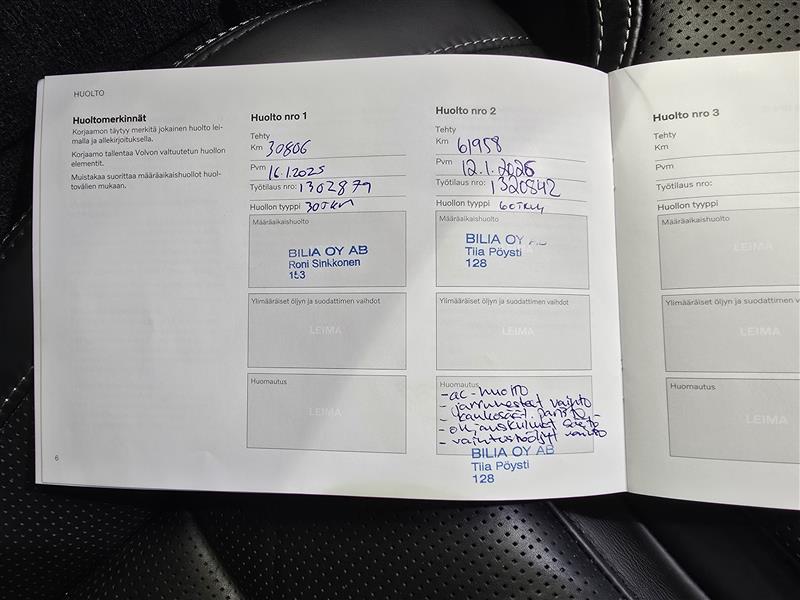 HUOLTO
Huoltomerkinnät
Korjaamon täytyy merkitä jokainen huolto lei-
malla ja allekirjoituksella.
Korjaamo tallentaa Volvon valtuutetun huollon
elementit.
Muistakaa suorittaa määräaikaishuollot huol-
tovälien mukaan.
6
Huolto nro 1
Tehty
Km 30806
Pvm 16.1.2025
Työtilaus nro: 1302879
Huollon tyyppi 30TKM
Määräaikaishuolto
BILIA OY AB
Roni Sinkkonen
Ylimääräiset öljyn ja suodattimen vaihdot
LEIMA
Huomautus
LEIMA
Huolto nro 2
Tehty
Km 61958
Pvm 12.1.2026
Työtilaus nro: 1320842
Huollon tyyppi 60TKM
Määräaikaishuolto
BILIA OY
Tiia Pöysti
128
Ylimääräiset öljyn ja suodattimen vaihdot
LEIMA
Huomautus
-ac-huolto
- jarrunesteet vaihto
- kaukosäät. paristo
- ohjauskulmat säätö
- vaihteistoöljyt vaihto
BILIA OY AB
Tiia Pöysti
128
Huolto nro 3
Tehty
Km
Pvm
Työtilaus nro:
Huollon tyyppi
Määräaikaishuolto
LEIMA
Ylimääräiset öljyn ja suodattimen vaihdot
LEIMA
Huomautus
LEIMA